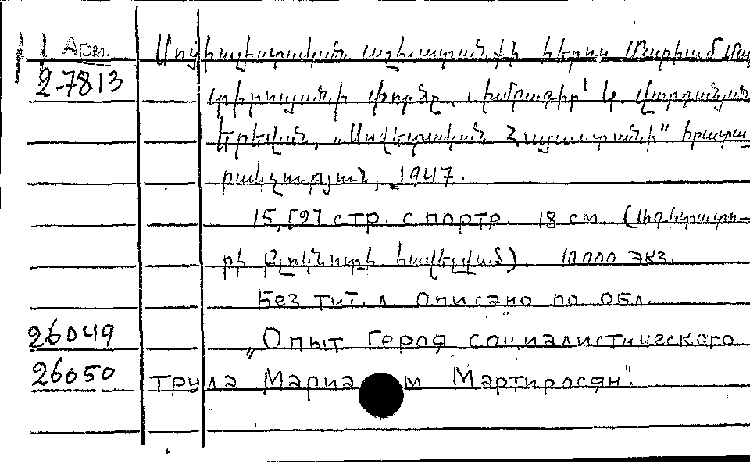 1 Арм. Սոցիալիստական աշխատանքի հերոս Մարիամ Մար
2-7813 տիրոսյանի փորձը.
Երևան, „Սովետական Հայաստանի" հրատա
րակչություն, 1947.
15, [9] стр. с портр. 18 см.
րի հավելված). 10000 экз.
Без тит. л. Описано по обл.
26049 „Опыт Героя социалистического
26050 труда Мариам Мартиросян".